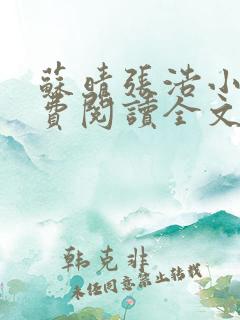 蘇晴張浩小
費閱讀全文
韩克非
未经同意禁止转载